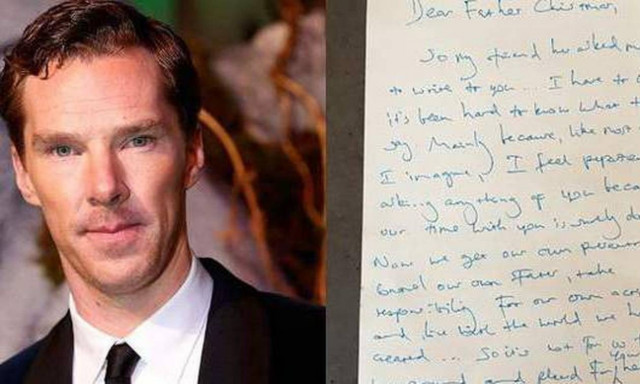 Dear Father Christmas,
So my friend has asked m
to write to you... I have to
it's been hard to know what
say. Mainly because, like most
I imagine, I feel
asking anything of you beca
our time with you is surely do
Now we get our own
our own Father, take
responsibility for our own act
and live with the world we h
created... So it's not for
around and plead